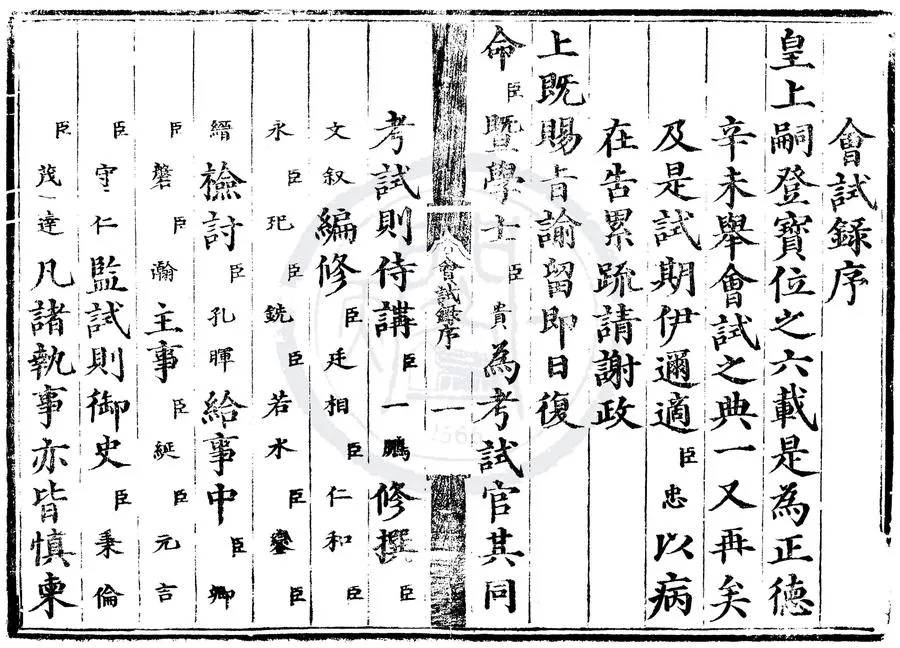 會試錄序
皇上嗣登寶位之六載是為正德
辛未舉會試之典一又再矣
及是試期伊邇適臣忠以病
在告累疏請謝政
上既賜旨諭留即日復
命臣暨學士臣貴為考試官其同
會試錄序 一
考試則侍講臣一鵬修撰臣
文叙編修臣廷相臣仁和
永臣圯銑臣若水臣鑾臣
縉檢討臣孔暉給事中臣卿
臣磐臣瀚主事臣綖臣元吉
臣守仁監試則御史臣秉倫
臣茂達凡諸執事亦皆慎柬
1566